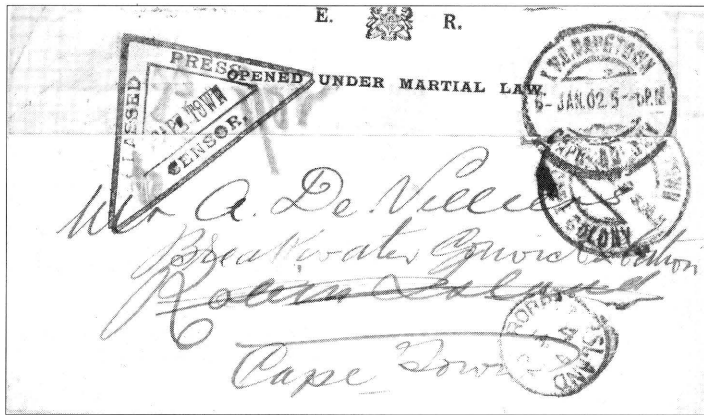 E. R.
OPENED UNDER MARTIAL LAW.
PASSED
PRESS
CAPE TOWN
CENSOR,
CAPETOWN
6- JAN.02.5- P.M
COLONY
A. De Villiers
Breakwater Convict Station
Robin Island
Cape Town
ISLAND